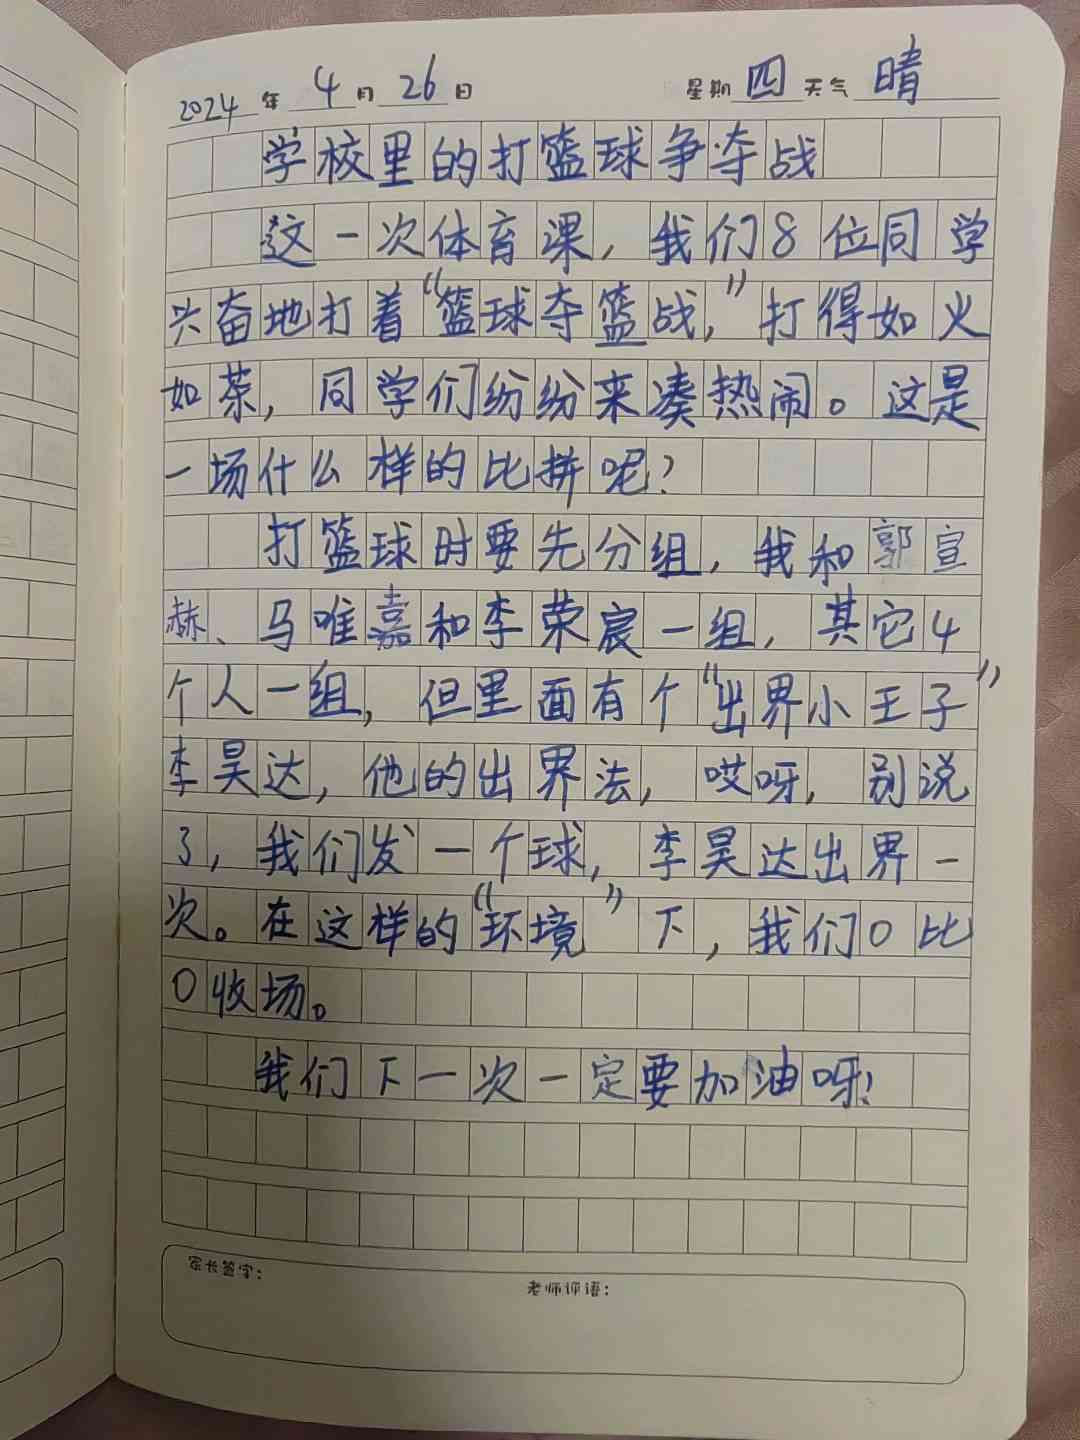 2024年4月26日 星期四天气晴
学校里的打篮球争夺战
这一次体育课，我们8位同学
兴奋地打着“篮球夺篮战，”打得如火
如荼，同学们纷纷来凑热闹。这是
一场什么样的比拼呢？
打篮球时要先分组，我和郭宣
赫、马唯嘉和李荣宸一组，其它4
个人一组，但里面有个“出界小王子”
李昊达，他的出界法，哎呀，别说
了，我们发一个球，李昊达出界一
次。在这样的“环境”下，我们0比
0收场。
我们下一次一定要加油呀！
家长签字：
老师评语：